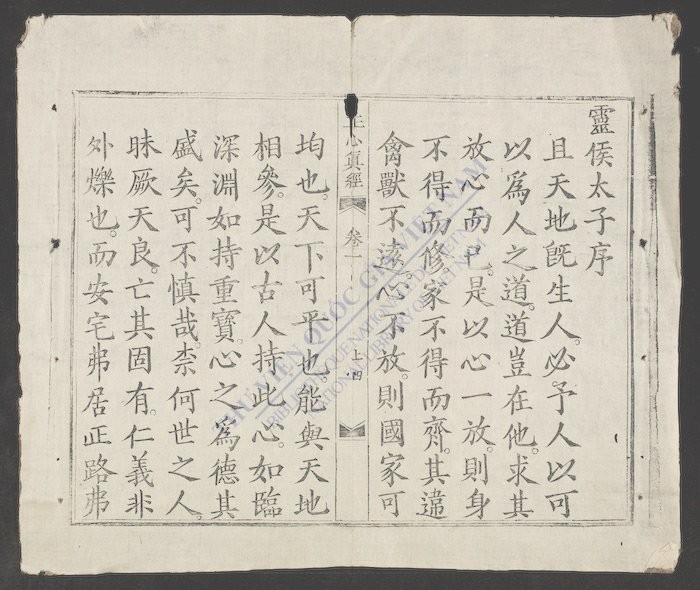 靈侯太子序
且天地旣生人。必予人以可
以爲人之道。道豈在他。求其
放心而已。是以心一放。則身
不得而修。家不得而齊。其違
禽獸不遠。心不放。則國家可
正心真經 卷一 上四
均也。天下可平也。能與天地
相參。是以古人持此心。如臨
深淵如持重寶。心之爲德其
盛矣。可不慎哉。柰何世之人。
昧厥天良。亡其固有。仁義非
外爍也。而安宅弗居正路弗
THƯ VIỆN QUỐC GIA VIỆT NAM
BIBLIOTHEQUE NATIONALE DU VIETNAM
NATIONAL LIBRARY OF VIETNAM